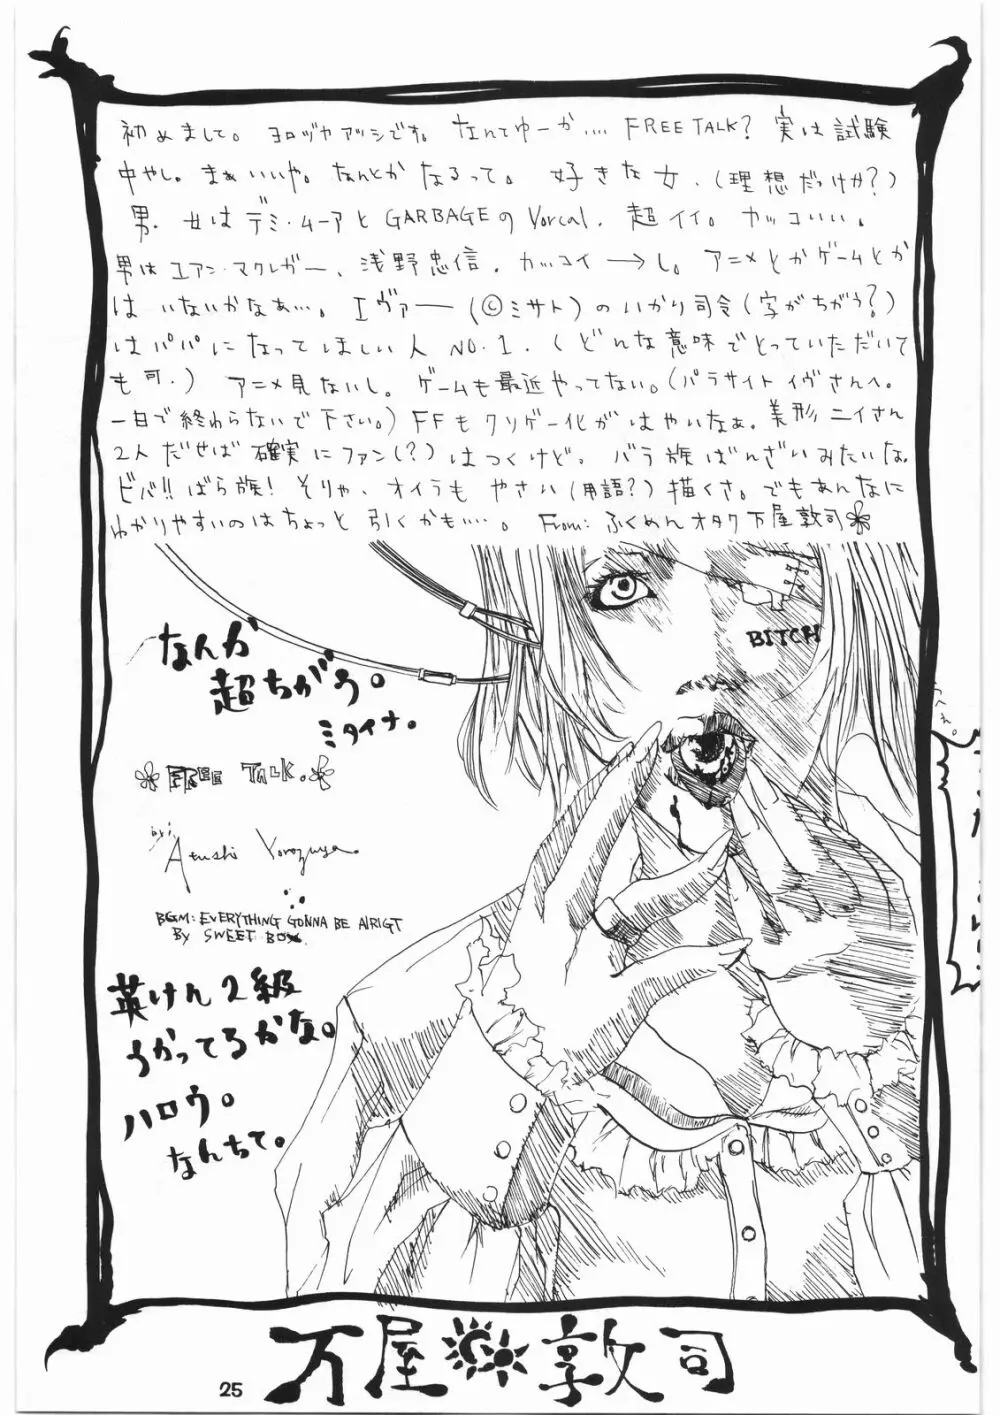 初めまして。ヨロヅヤアツシです。なんてゆーか‥‥FREE TALK? 実は試験
中やし。まぁいいや。なんとかなるって。好きな女.(理想だっけか?)
男.女はデミ・ムーアとGARBAGEのVorcal. 超イイ。カッコいい。
男はユアン・マクレガー、浅野忠信.カッコイ→し。アニメとかゲームとか
はいないかなぁ…。エヴァー(©ミサト)のいかり司令(字がちがう?)
はパパになってほしい人 NO.1.(どんな意味でとっていただいて
も可.)アニメ見ないし。ゲームも最近やってない。(パラサイトイヴさんへ。
一日で終わらないで下さい。)FFもクソゲー化がはやいなぁ。美形ニイさん
2人だせば確実にファン(?)はつくけど。バラ族ばんざいみたいな。
ビバ!!ばら族!そりゃ、オイラもやさい(用語?)描くさ。でもあんなに
わかりやすいのはちょっと引くかも‥‥。From:ふくめんオタク万屋敦司
BITCH
なんか
超ちがう。
ミタイナ。
うへぇ。
FREE TALK.
Atushi Yorozuya.
BGM: EVERYTHING GONNA BE AlRIGT
By SWEET BOX.
英けん2級
うかってるかな。
ハロウ。
なんちて。
万屋敦司
25